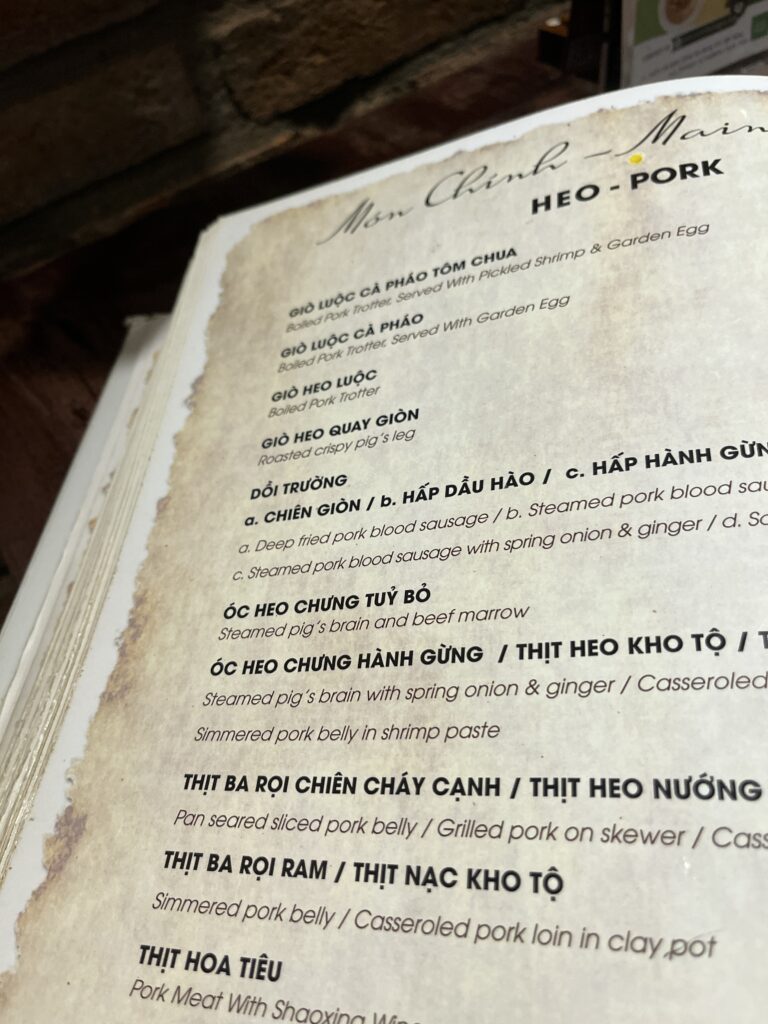 Món Chính - Main
HEO - PORK
GIÒ LUỘC CÀ PHÁO TÔM CHUA
Boiled Pork Trotter, Served With Pickled Shrimp & Garden Egg
GIÒ LUỘC CÀ PHÁO
Boiled Pork Trotter, Served With Garden Egg
GIÒ HEO LUỘC
Boiled Pork Trotter
GIÒ HEO QUAY GIÒN
Roasted crispy pig's leg
DỒI TRƯỜNG
a. CHIÊN GIÒN / b. HẤP DẦU HÀO / c. HẤP HÀNH GỪN
a. Deep fried pork blood sausage / b. Steamed pork blood sau
c. Steamed pork blood sausage with spring onion & ginger / d. So
ÓC HEO CHƯNG TUỶ BÒ
Steamed pig's brain and beef marrow
ÓC HEO CHƯNG HÀNH GỪNG / THỊT HEO KHO TỘ / T
Steamed pig's brain with spring onion & ginger / Casseroled
Simmered pork belly in shrimp paste
THỊT BA RỌI CHIÊN CHÁY CẠNH / THỊT HEO NƯỚNG
Pan seared sliced pork belly / Grilled pork on skewer / Cass
THỊT BA RỌI RAM / THỊT NẠC KHO TỘ
Simmered pork belly / Casseroled pork loin in clay pot
THỊT HOA TIÊU
Pork Meat With Shaoxing Wine